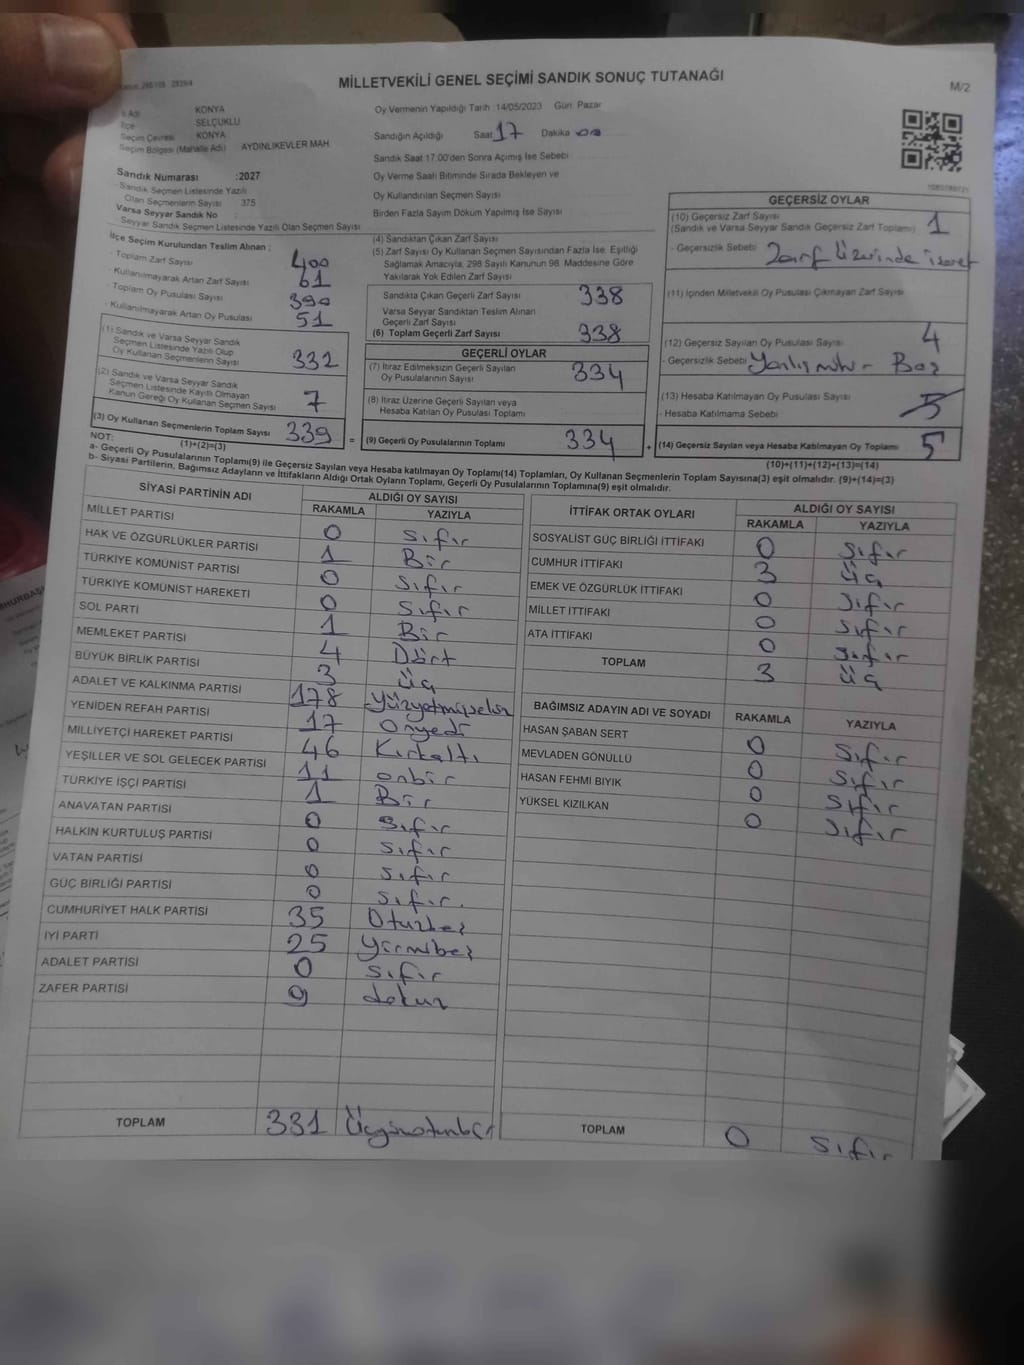 MİLLETVEKİLİ GENEL SEÇİMİ SANDIK SONUÇ TUTANAĞI
M/2
İl Adı KONYA
İlçe SELÇUKLU
Seçim Çevresi KONYA
Seçim Bölgesi (Mahalle Adı) AYDINLIKEVLER MAH.
Sandık Numarası :2027
- Sandık Seçmen Listesinde Yazılı
Olan Seçmenlerin Sayısı 375
Varsa Seyyar Sandık No
- Seyyar Sandık Seçmen Listesinde Yazılı Olan Seçmen Sayısı
Oy Vermenin Yapıldığı Tarih :14/05/2023 Gün Pazar
Sandığın Açıldığı Saat 17 Dakika 00
Sandık Saat 17.00'den Sonra Açımış İse Sebebi
Oy Verme Saati Bitiminde Sırada Bekleyen ve
Oy Kullandırılan Seçmen Sayısı
Birden Fazla Sayım Döküm Yapılmış İse Sayısı
İlçe Seçim Kurulundan Teslim Alınan :
- Toplam Zarf Sayısı 400
- Kullanılmayarak Artan Zarf Sayısı 61
- Toplam Oy Pusulası Sayısı 390
- Kullanılmayarak Artan Oy Pusulası 51
(1) Sandık ve Varsa Seyyar Sandık
Seçmen Listesinde Yazılı Olup
Oy Kullanan Seçmenlerin Sayısı 332
(2) Sandık ve Varsa Seyyar Sandık
Seçmen Listesinde Kayıtlı Olmayan
Kanun Gereği Oy Kullanan Seçmen Sayısı 7
(3) Oy Kullanan Seçmenlerin Toplam Sayısı 339 =
(1)+(2)=(3)
(4) Sandıktan Çıkan Zarf Sayısı
(5) Zarf Sayısı Oy Kullanan Seçmen Sayısından Fazla İse, Eşitliği
Sağlamak Amacıyla, 298 Sayılı Kanunun 98. Maddesine Göre
Yakılarak Yok Edilen Zarf Sayısı
Sandıkta Çıkan Geçerli Zarf Sayısı 338
Varsa Seyyar Sandıktan Teslim Alınan
Geçerli Zarf Sayısı
(6) Toplam Geçerli Zarf Sayısı 338
GEÇERLİ OYLAR
(7) İtiraz Edilmeksizin Geçerli Sayılan
Oy Pusulalarının Sayısı 334
(8) İtiraz Üzerine Geçerli Sayılan veya
Hesaba Katılan Oy Pusulası Toplamı
(9) Geçerli Oy Pusulalarının Toplamı 334 +
GEÇERSİZ OYLAR
(10) Geçersiz Zarf Sayısı
(Sandık ve Varsa Seyyar Sandık Geçersiz Zarf Toplamı) 1
- Geçersizlik Sebebi Zarf Üzerinde işaret
(11) İçinden Milletvekili Oy Pusulası Çıkmayan Zarf Sayısı
(12) Geçersiz Sayılan Oy Pusulası Sayısı 4
- Geçersizlik Sebebi Yanlış mühür - Boş
(13) Hesaba Katılmayan Oy Pusulası Sayısı 5
- Hesaba Katılmama Sebebi
(14) Geçersiz Sayılan veya Hesaba Katılmayan Oy Toplamı 5
(10)+(11)+(12)+(13)=(14)
NOT:
a- Geçerli Oy Pusulalarının Toplamı(9) ile Geçersiz Sayılan veya Hesaba katılmayan Oy Toplamı(14) Toplamları, Oy Kullanan Seçmenlerin Toplam Sayısına(3) eşit olmalıdır. (9)+(14)=(3)
b- Siyasi Partilerin, Bağımsız Adayların ve İttifakların Aldığı Ortak Oyların Toplamı, Geçerli Oy Pusulalarının Toplamına(9) eşit olmalıdır.
SİYASİ PARTİNİN ADI ALDIĞI OY SAYISI
RAKAMLA YAZIYLA
MİLLET PARTİSİ 0 Sıfır
HAK VE ÖZGÜRLÜKLER PARTİSİ 1 Bir
TÜRKİYE KOMÜNİST PARTİSİ 0 Sıfır
TÜRKİYE KOMÜNİST HAREKETİ 0 Sıfır
SOL PARTİ 1 Bir
MEMLEKET PARTİSİ 4 Dört
BÜYÜK BİRLİK PARTİSİ 3 Üç
ADALET VE KALKINMA PARTİSİ 178 Yüzyetmişsekiz
YENİDEN REFAH PARTİSİ 17 Onyedi
MİLLİYETÇİ HAREKET PARTİSİ 46 Kırkaltı
YEŞİLLER VE SOL GELECEK PARTİSİ 11 onbir
TÜRKİYE İŞÇİ PARTİSİ 1 Bir
ANAVATAN PARTİSİ 0 Sıfır
HALKIN KURTULUŞ PARTİSİ 0 Sıfır
VATAN PARTİSİ 0 Sıfır
GÜÇ BİRLİĞİ PARTİSİ 0 Sıfır.
CUMHURİYET HALK PARTİSİ 35 Otuzbeş
İYİ PARTİ 25 Yirmibeş
ADALET PARTİSİ 0 Sıfır
ZAFER PARTİSİ 9 dokuz
TOPLAM 331 Üçyüzotuzbir
İTTİFAK ORTAK OYLARI ALDIĞI OY SAYISI
RAKAMLA YAZIYLA
SOSYALİST GÜÇ BİRLİĞİ İTTİFAKI 0 Sıfır
CUMHUR İTTİFAKI 3 Üç
EMEK VE ÖZGÜRLÜK İTTİFAKI 0 Sıfır
MİLLET İTTİFAKI 0 Sıfır
ATA İTTİFAKI 0 Sıfır
TOPLAM 3 Üç
BAĞIMSIZ ADAYIN ADI VE SOYADI RAKAMLA YAZIYLA
HASAN ŞABAN SERT 0 Sıfır
MEVLADEN GÖNÜLLÜ 0 Sıfır
HASAN FEHMİ BIYIK 0 Sıfır
YÜKSEL KIZILKAN 0 Sıfır
TOPLAM 0 Sıfır